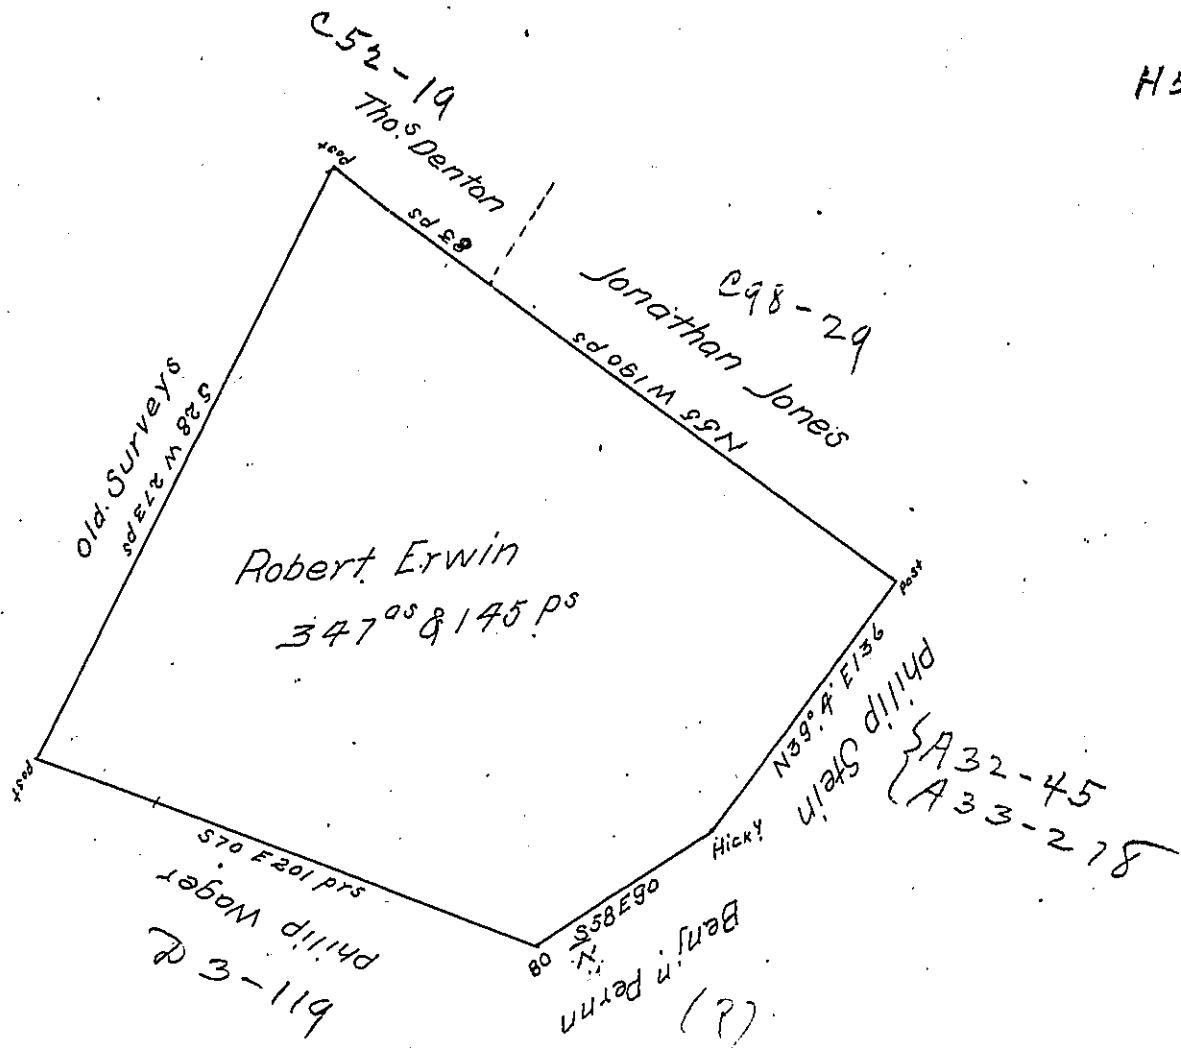 C52-19
Tho.s Denton
H5
post
83 ps
C98-29
Jonathan Jones
N55 W190 ps
Old. Surveys
S28 W 273 ps
Robert Erwin
347 as & 145 ps
post
N39° 4' E136
Philip Stein
{A32-45
A33-278
post
Hicky
S70 E201 prs
Philip Wager
D3-119
S58E90
N
BO
Benj'n Pernn
(?)